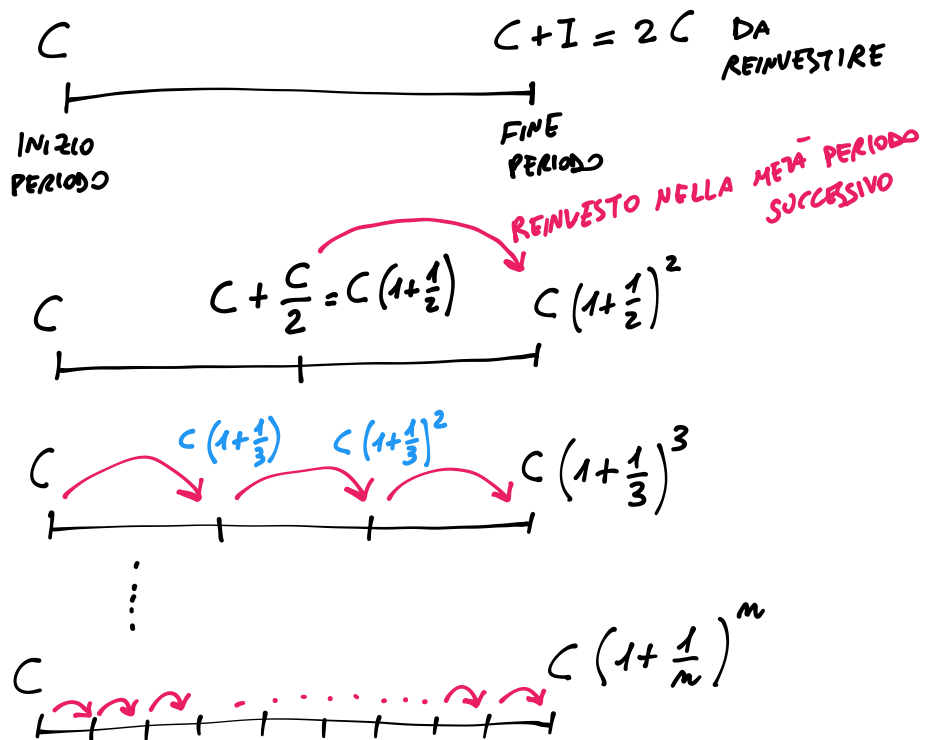 C
C + I = 2 C DA
REINVESTIRE
INIZIO
PERIODO
FINE
PERIODO
REINVESTO NELLA METÀ PERIODO
SUCCESSIVO
C
C + C/2 = C (1+1/2)
C (1+1/2)^2
C
C (1+1/3)
C (1+1/3)^2
C (1+1/3)^3
C
C (1+1/n)^n